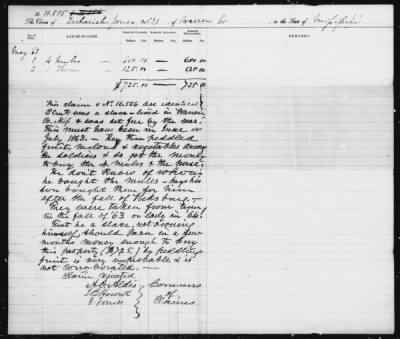 No. 11.515
The Claim of Hezekiah Jones, col'd, of Warren Co. in the State of Mississippi
NATURE OF CLAIM. REMARKS.
May 63
1 4 Mules — 600.00 — 600.00
2 1 Horse 125.00 — 125.00
$725.00 — 725.00
This claim & No. 16.586 are identical
Clmt was a slave — lived in Warren
Co. Miss & was set free by the war.
This must have been in June or
July 1863. — They then peddled
fruit, melons & vegetables among
the soldiers & so got the money
to buy the 4 mules & the horse.
He don't know of whom
he bought the mules — says his
son bought them for him
after the fall of Vicksburg —
They were taken from him
in the fall of '63 or early in 64.
That he a slave, not owning
himself, should earn in a few
months money enough to buy
this property ($725) by peddling
fruit is very improbable & is
not corroborated. —
Claim rejected
A. O. Aldis
J. B. Howell
O. Ferriss
Commrs
of
Claims